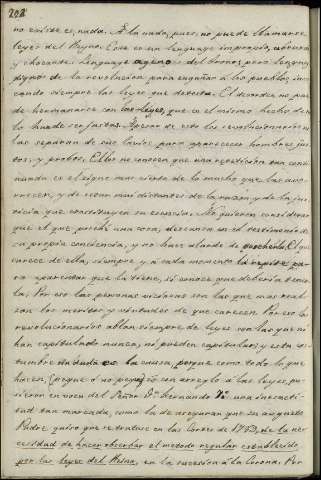 202
no existe es, nada. A la nada, pues, no puede llamarse
leyes del Reyno. Esto es un lenguaje impropio, absurdo
y chocante. Lenguaje ageno del
digno de la revolucion para engañar a los pueblos, invo-
cando siempre las leyes que detesta. El desorden no pue-
de hermanarse con las leyes, que es el mismo hecho de
lo han de ser justas. Apesar de esto los revolucionarios no
las separan de sus labios para parecer hombres jus-
tos, y probos. Ellos no conocen que una repeticion tan conti-
nuada es el signo mas cierto de lo mucho que las abo-
rrecen, y de estar mui distantes de la razon, y de la jus-
ticia que constituyen su esencia. No quieren considerar
que el que posée una cosa, descansa en el testimonio de
su propia conciencia, y no hace alarde de poseherla. El que
carece de ella, siempre y a cada momento la repite pa-
ra aparentar que la tiene, si conoce que deberia tener-
la. Por eso las personas viciosas son las que mas real-
zan los meritos y virtudes de que carecen. Por eso los
revolucionarios ablan siempre de leyes con las que no
han capitulado nunca, ni pueden capitular; y esta cos-
tumbre sin duda es la causa, porque como todo lo que
hacen, (pregue ó no pegue) es con arreglo a las leyes, pu-
sieron en voca del Señor Dn. Fernando 7º una inexacti-
tud tan marcada, como la de asegurar que su augusto
Padre quiso que se tratase en las Cortes de 1789, de la ne-
cesidad de hacer observar el metodo regular establecido
por las leyes del Reino, en la sucesion á la Corona. Por